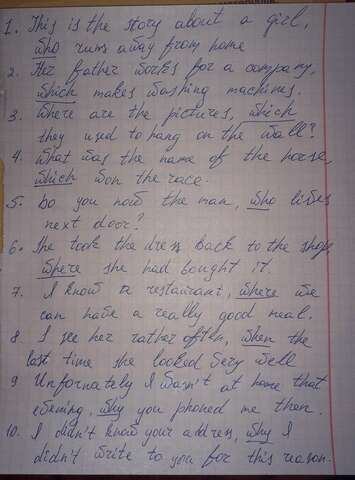 1. This is the story about a girl,
who runs away from home
2. Her father works for a company,
which makes washing machines.
3. Where are the pictures, which
they used to hang on the wall?
4. What was the name of the horse,
which won the race.
5. Do you now the man, who lives
next door?
6. She took the dress back to the shop
where she had bought it.
7. I know a restaurant, where we
can have a really good meal.
8 I see her rather often, when the
last time she looked very well
9 Unfornately I wasn't at home that
evening, why you phoned me then.
10. I didn't know your address, why I
didn't write to you for this reason.